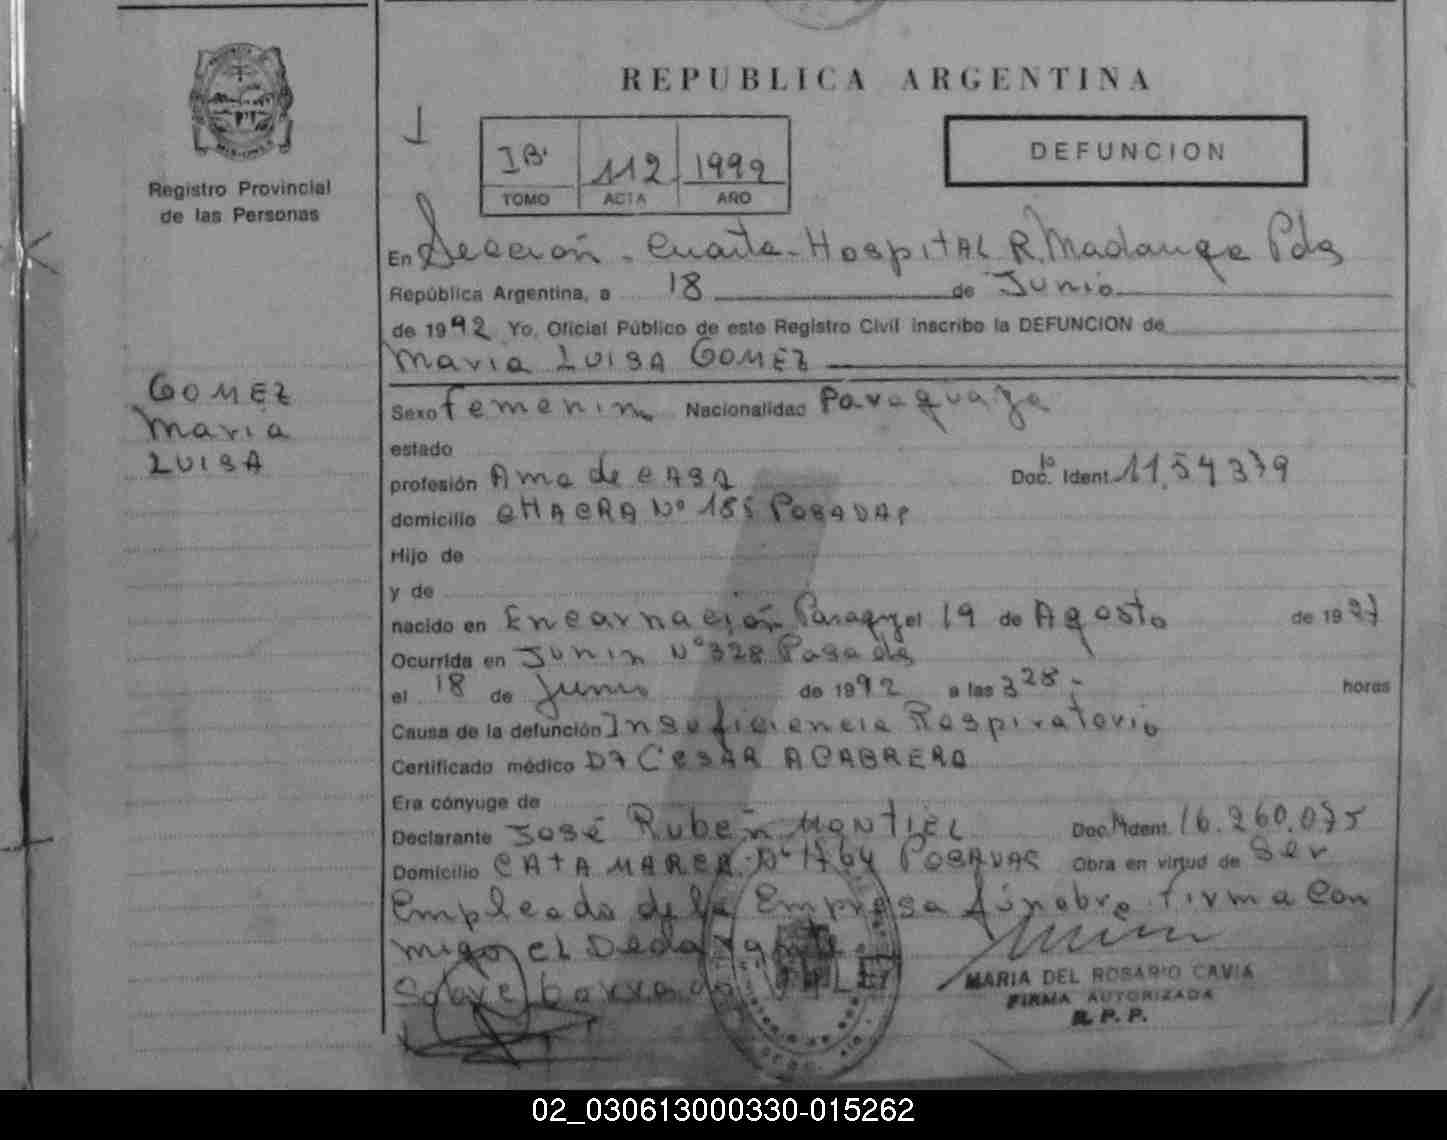 REPUBLICA ARGENTINA
DEFUNCION
112 1992
TOMO ACTA AÑO
Registro Provincial
de las Personas
En Sección Cuarta - Hospital R. Madariaga Pds
República Argentina, a 18 de Junio
de 1992 Yo, Oficial Público de este Registro Civil inscribo la DEFUNCION de
Maria LUISA GOMEZ
GOMEZ
Maria
LUISA
Sexo femenino Nacionalidad Paraguaya
estado
profesión Ama de CASA Doc. Ident. 11.54379
domicilio CHACRA Nº 185 POSADAS
Hijo de
y de
nacido en Encarnación Paraguay el 19 de Agosto de 19
Ocurrida en Junin Nº 328 Posadas
el 18 de Junio de 1992 a las 3 28 horas
Causa de la defunción Insuficiencia Respiratorio
Certificado médico CESAR A CABRERA
Era cónyuge de
Declarante José Rubén MONTIEL Doc. Ident. 16.260.075
Domicilio CATAMARCA Nº 1764 POSADAS Obra en virtud de Ser
Empleado de la Empresa fúnebre firma con
migo el
Sobre
MARIA DEL ROSARIO CAVIA
FIRMA AUTORIZADA
R. P. P.
02_030613000330-015262